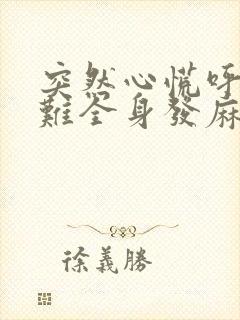 突然心慌呼
難全身發麻
徐義勝